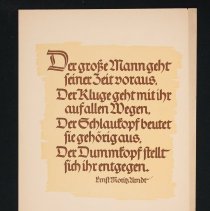 Der große Mann geht
seiner Zeit voraus,
Der Kluge geht mit ihr
auf allen Wegen,
Der Schlaukopf beutet
sie gehörig aus,
Der Dummkopf stellt
sich ihr entgegen.
Ernst Moritz Arndt